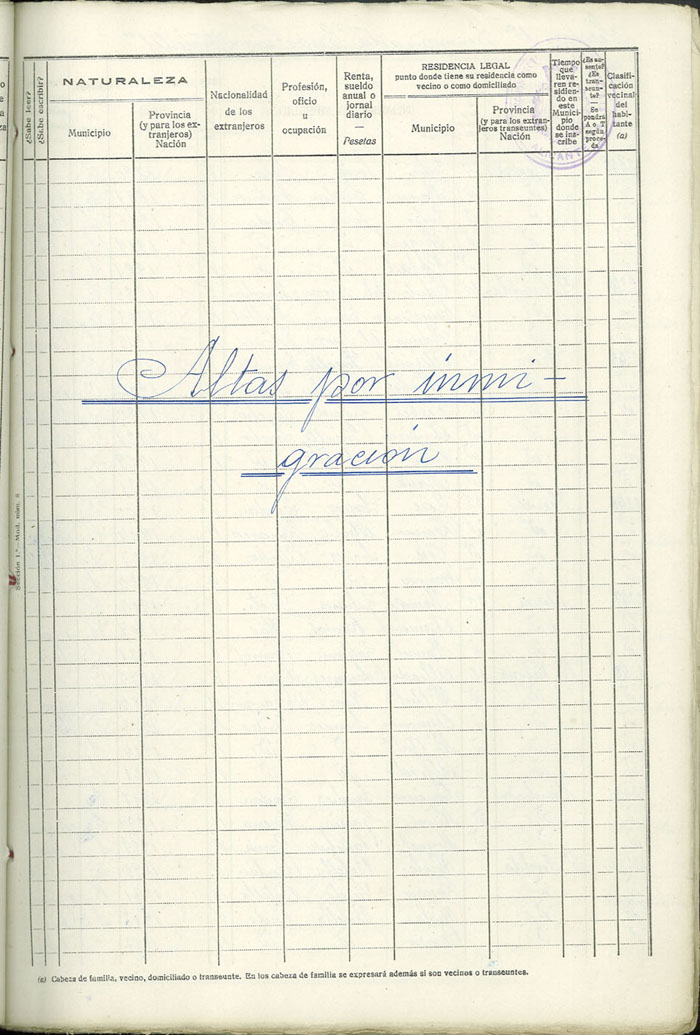 ¿Sabe leer?
¿Sabe escribir?
NATURALEZA
Municipio
Provincia
(y para los ex-
tranjeros)
Nación
Nacionalidad
de los
extranjeros
Profesión,
oficio
u
ocupación
Renta,
sueldo
anual o
jornal
diario
—
Pesetas
RESIDENCIA LEGAL
punto donde tiene su residencia como
vecino o como domiciliado
Municipio
Provincia
(y para los extran-
jeros transeuntes)
Nación
Tiempo
que
lleva-
ren resi-
diendo
en este
Munici-
pio
donde
se ins-
cribe
¿Es au-
sente?
¿Es
tran-
seun-
te?
—
Se
pondrá
A o T
según
proce-
da
Clasifi-
cación
vecinal
del
habi-
tante
(a)
Altas por inmi-
gración
Sección 1.ª—Mod. núm. 8
(a) Cabeza de familia, vecino, domiciliado o transeunte. En los cabeza de familia se expresará además si son vecinos o transeuntes.